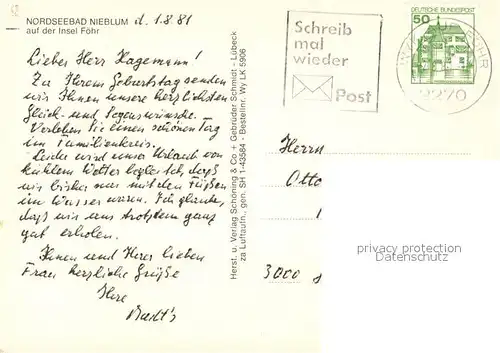 NORDSEEBAD NIEBLUM d. 1.8.81
auf der Insel Föhr
Lieber Herr Hagemann!
Zu Ihrem Geburtstag senden
wir Ihnen unsere herzlichsten
Glück- und Segenswünsche.
Verleben Sie einen schönen Tag
im Familienkreis.
Leider wird unser Urlaub von
kühlem Wetter begleitet, daß
wir bisher nur mit den Füßen
im Wasser waren. Ich glaube,
daß wir uns trotzdem ganz
gut erholen.
Ihnen und Ihrer lieben
Frau herzliche Grüße
Ihre
Herst. u. Verlag Schöning & Co + Gebrüder Schmidt - Lübeck
za Luftaufn., gen. SH 1-43584 - Bestellnr. Wy LK 5906
Schreib
mal
wieder
Post
DEUTSCHE BUNDESPOST
50
2270
Herrn
Otto
3000
privacy protection
Datenschutz